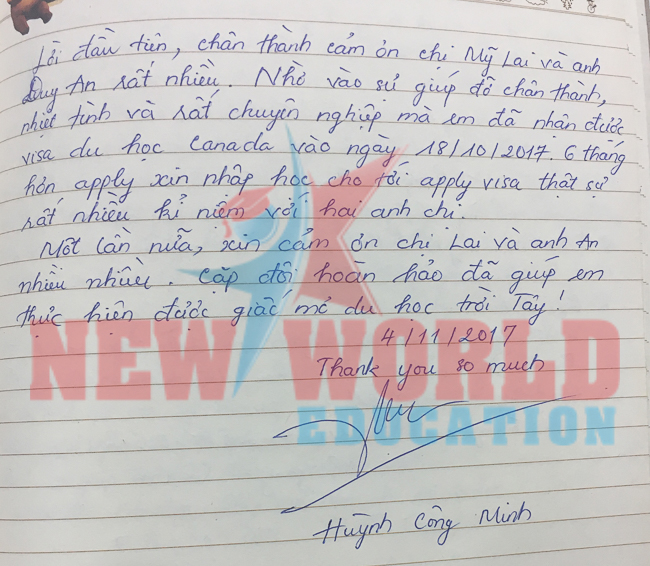 Lời đầu tiên, chân thành cảm ơn chị Mỹ Lai và anh
Duy An rất nhiều. Nhờ vào sự giúp đỡ chân thành,
nhiệt tình và rất chuyên nghiệp mà em đã nhận được
visa du học Canada vào ngày 18/10/2017. 6 tháng
hơn apply xin nhập học cho tới apply visa thật sự
rất nhiều kỉ niệm với hai anh chị.
Một lần nữa, xin cảm ơn chị Lai và anh An
nhiều nhiều. Cặp đôi hoàn hảo đã giúp em
thực hiện được giấc mơ du học trời Tây!
4/11/2017
Thank you so much
NEW WORLD
EDUCATION
Huỳnh Công Minh